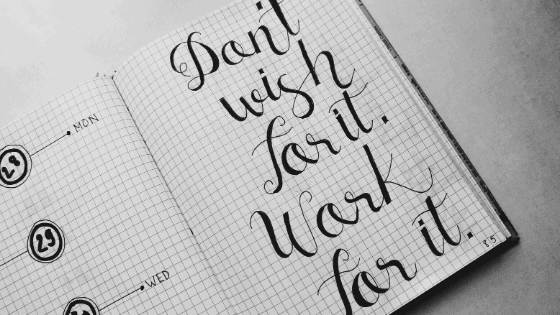 MON
28
29
WED
Don't
wish
for it.
Work
for it.
85